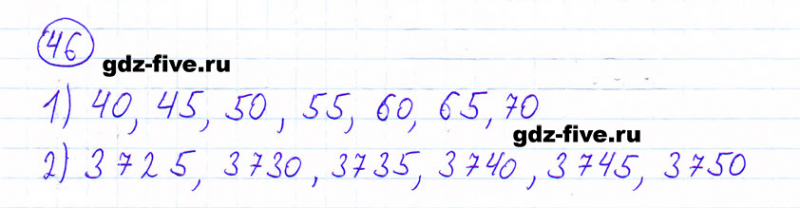 46
gdz-five.ru
1) 40, 45, 50, 55, 60, 65, 70
gdz-five.ru
2) 3725, 3730, 3735, 3740, 3745, 3750